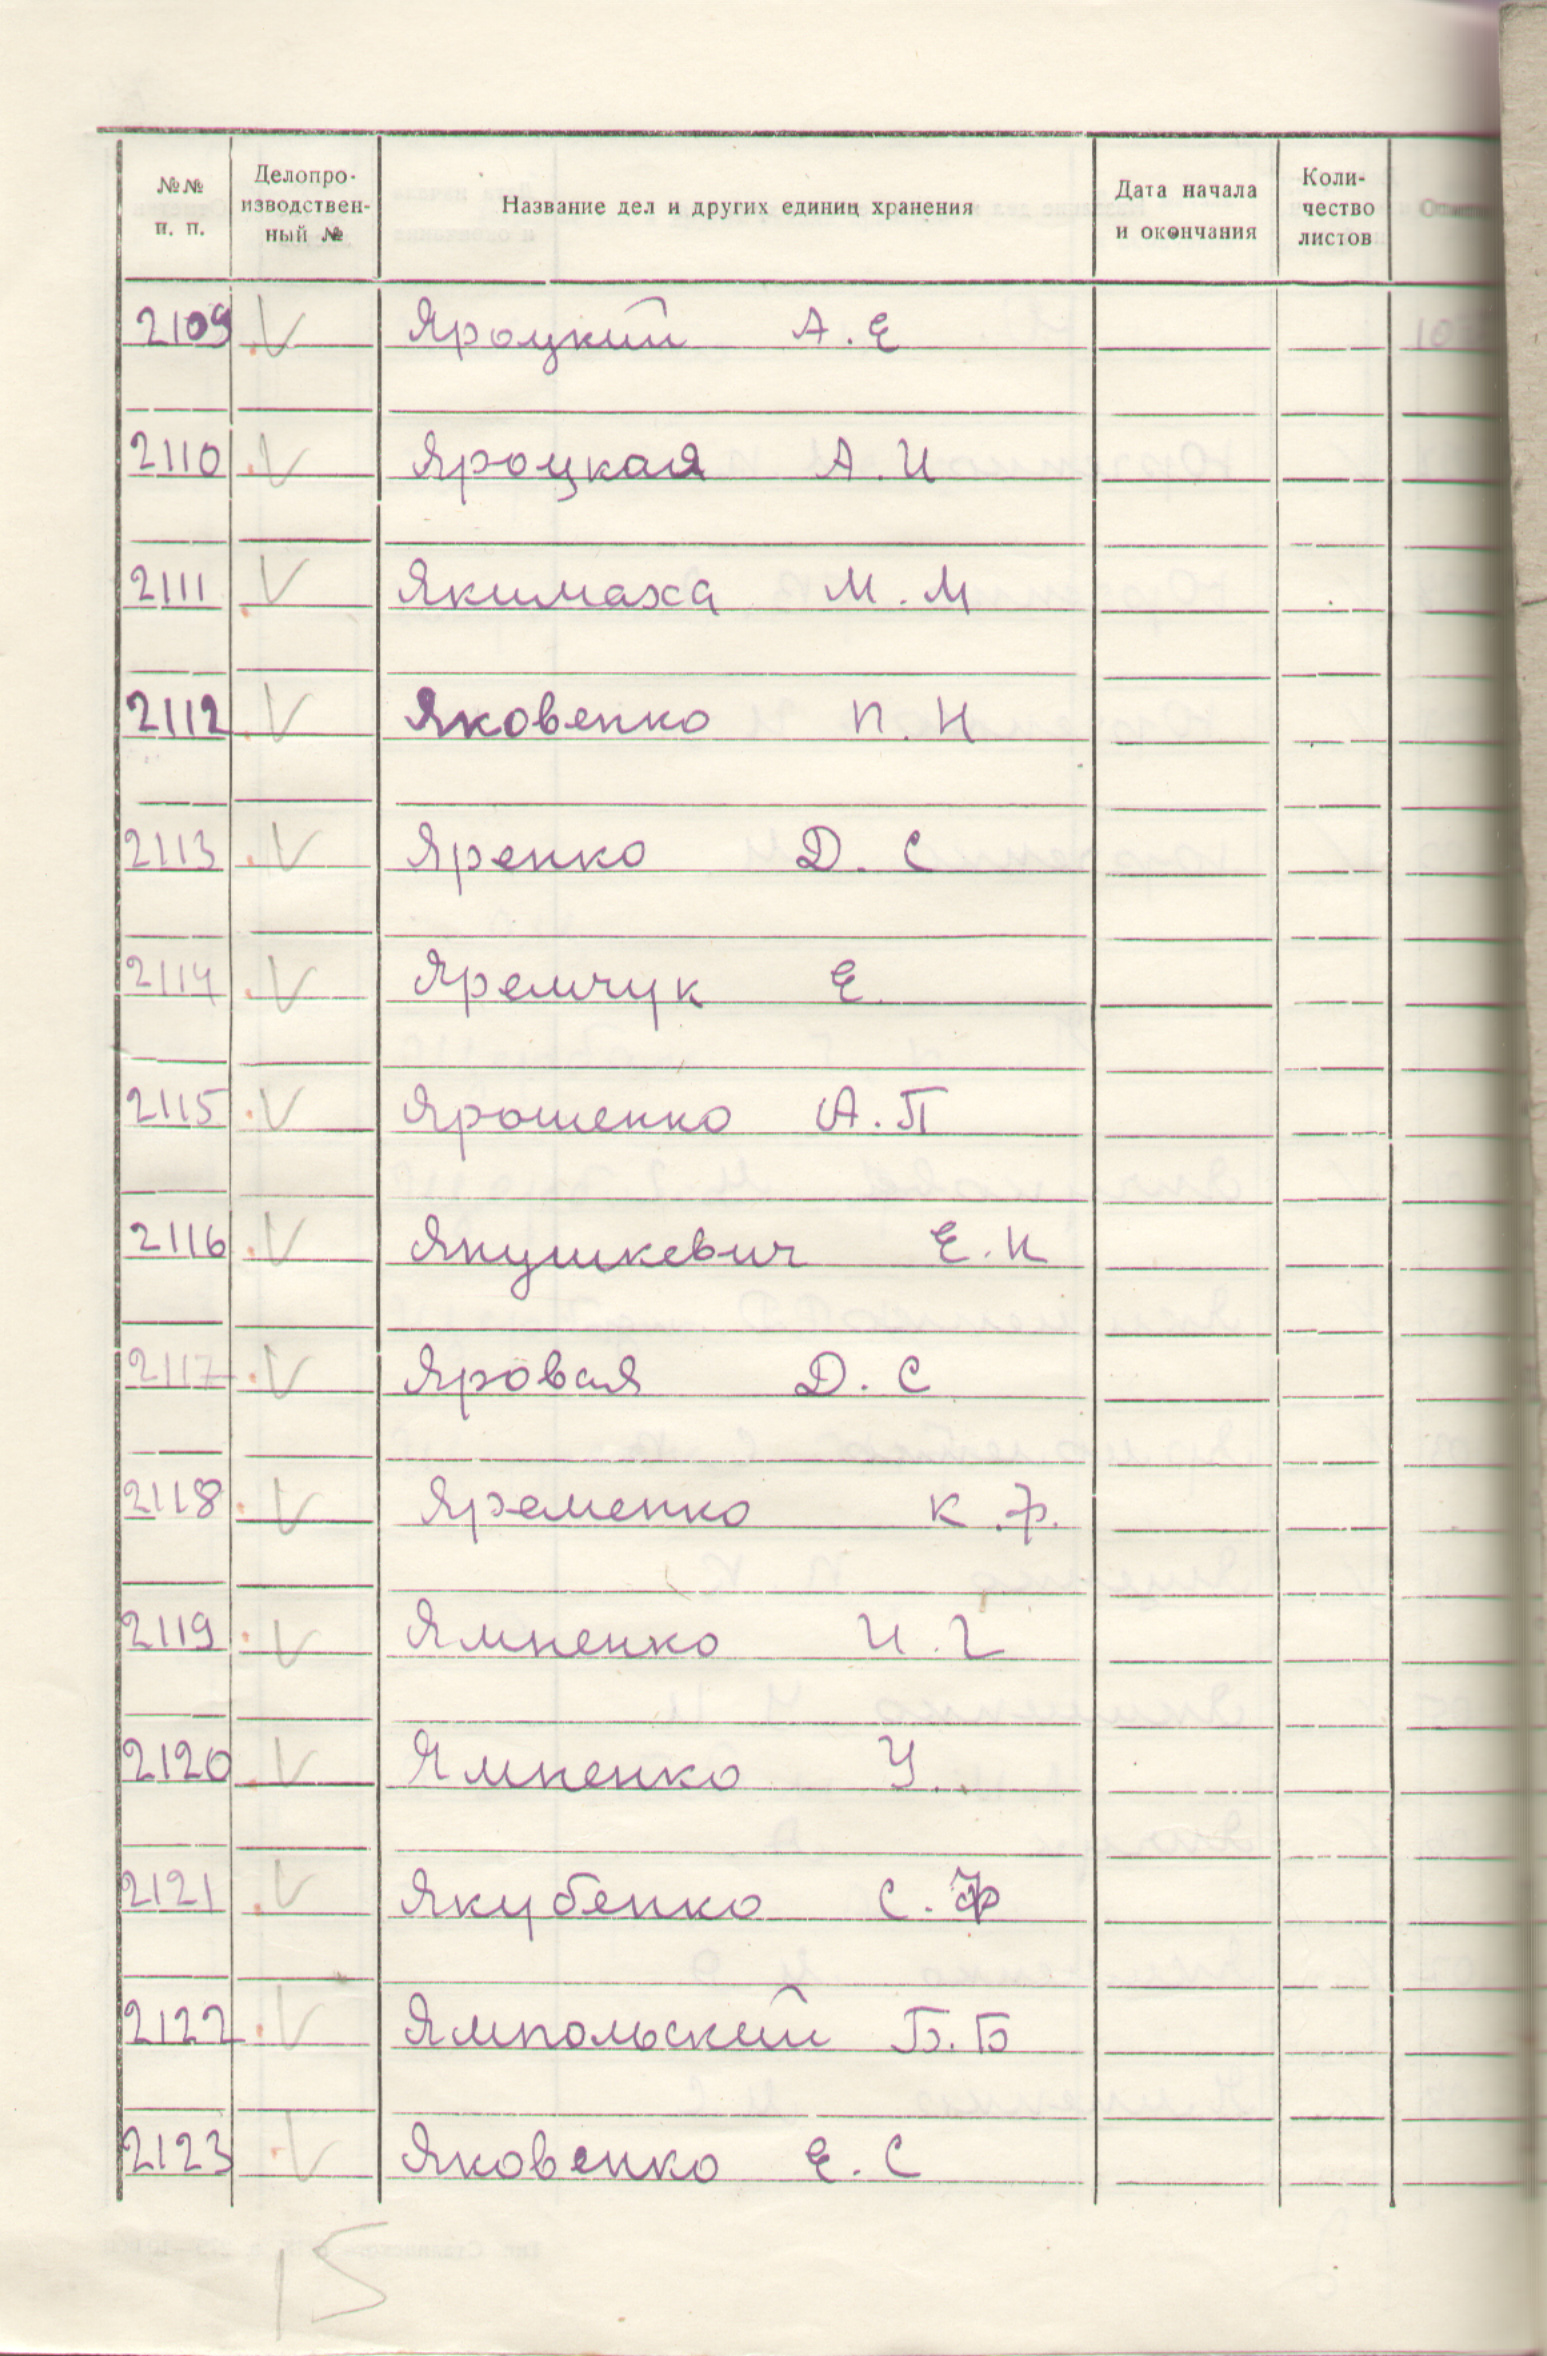 №№ п. п. Делопроизводственный № Название дел и других единиц хранения Дата начала и окончания Количество листов
2109 V Яроцкий А.Е
2110 V Яроцкая А.И
2111 V Якимаха М.М
2112 V Яковенко П.Н
2113 V Яренко Д.С
2114 V Яремчук Е.
2115 V Ярошенко А.П
2116 V Якушкевич Е.И
2117 V Яровая Д.С
2118 V Яременко К.Ф.
2119 V Ямненко И.Г
2120 V Ямненко У.
2121 V Якубенко С.Ф
2122 V Ямпольский Б.Б
2123 V Яковенко Е.С
15